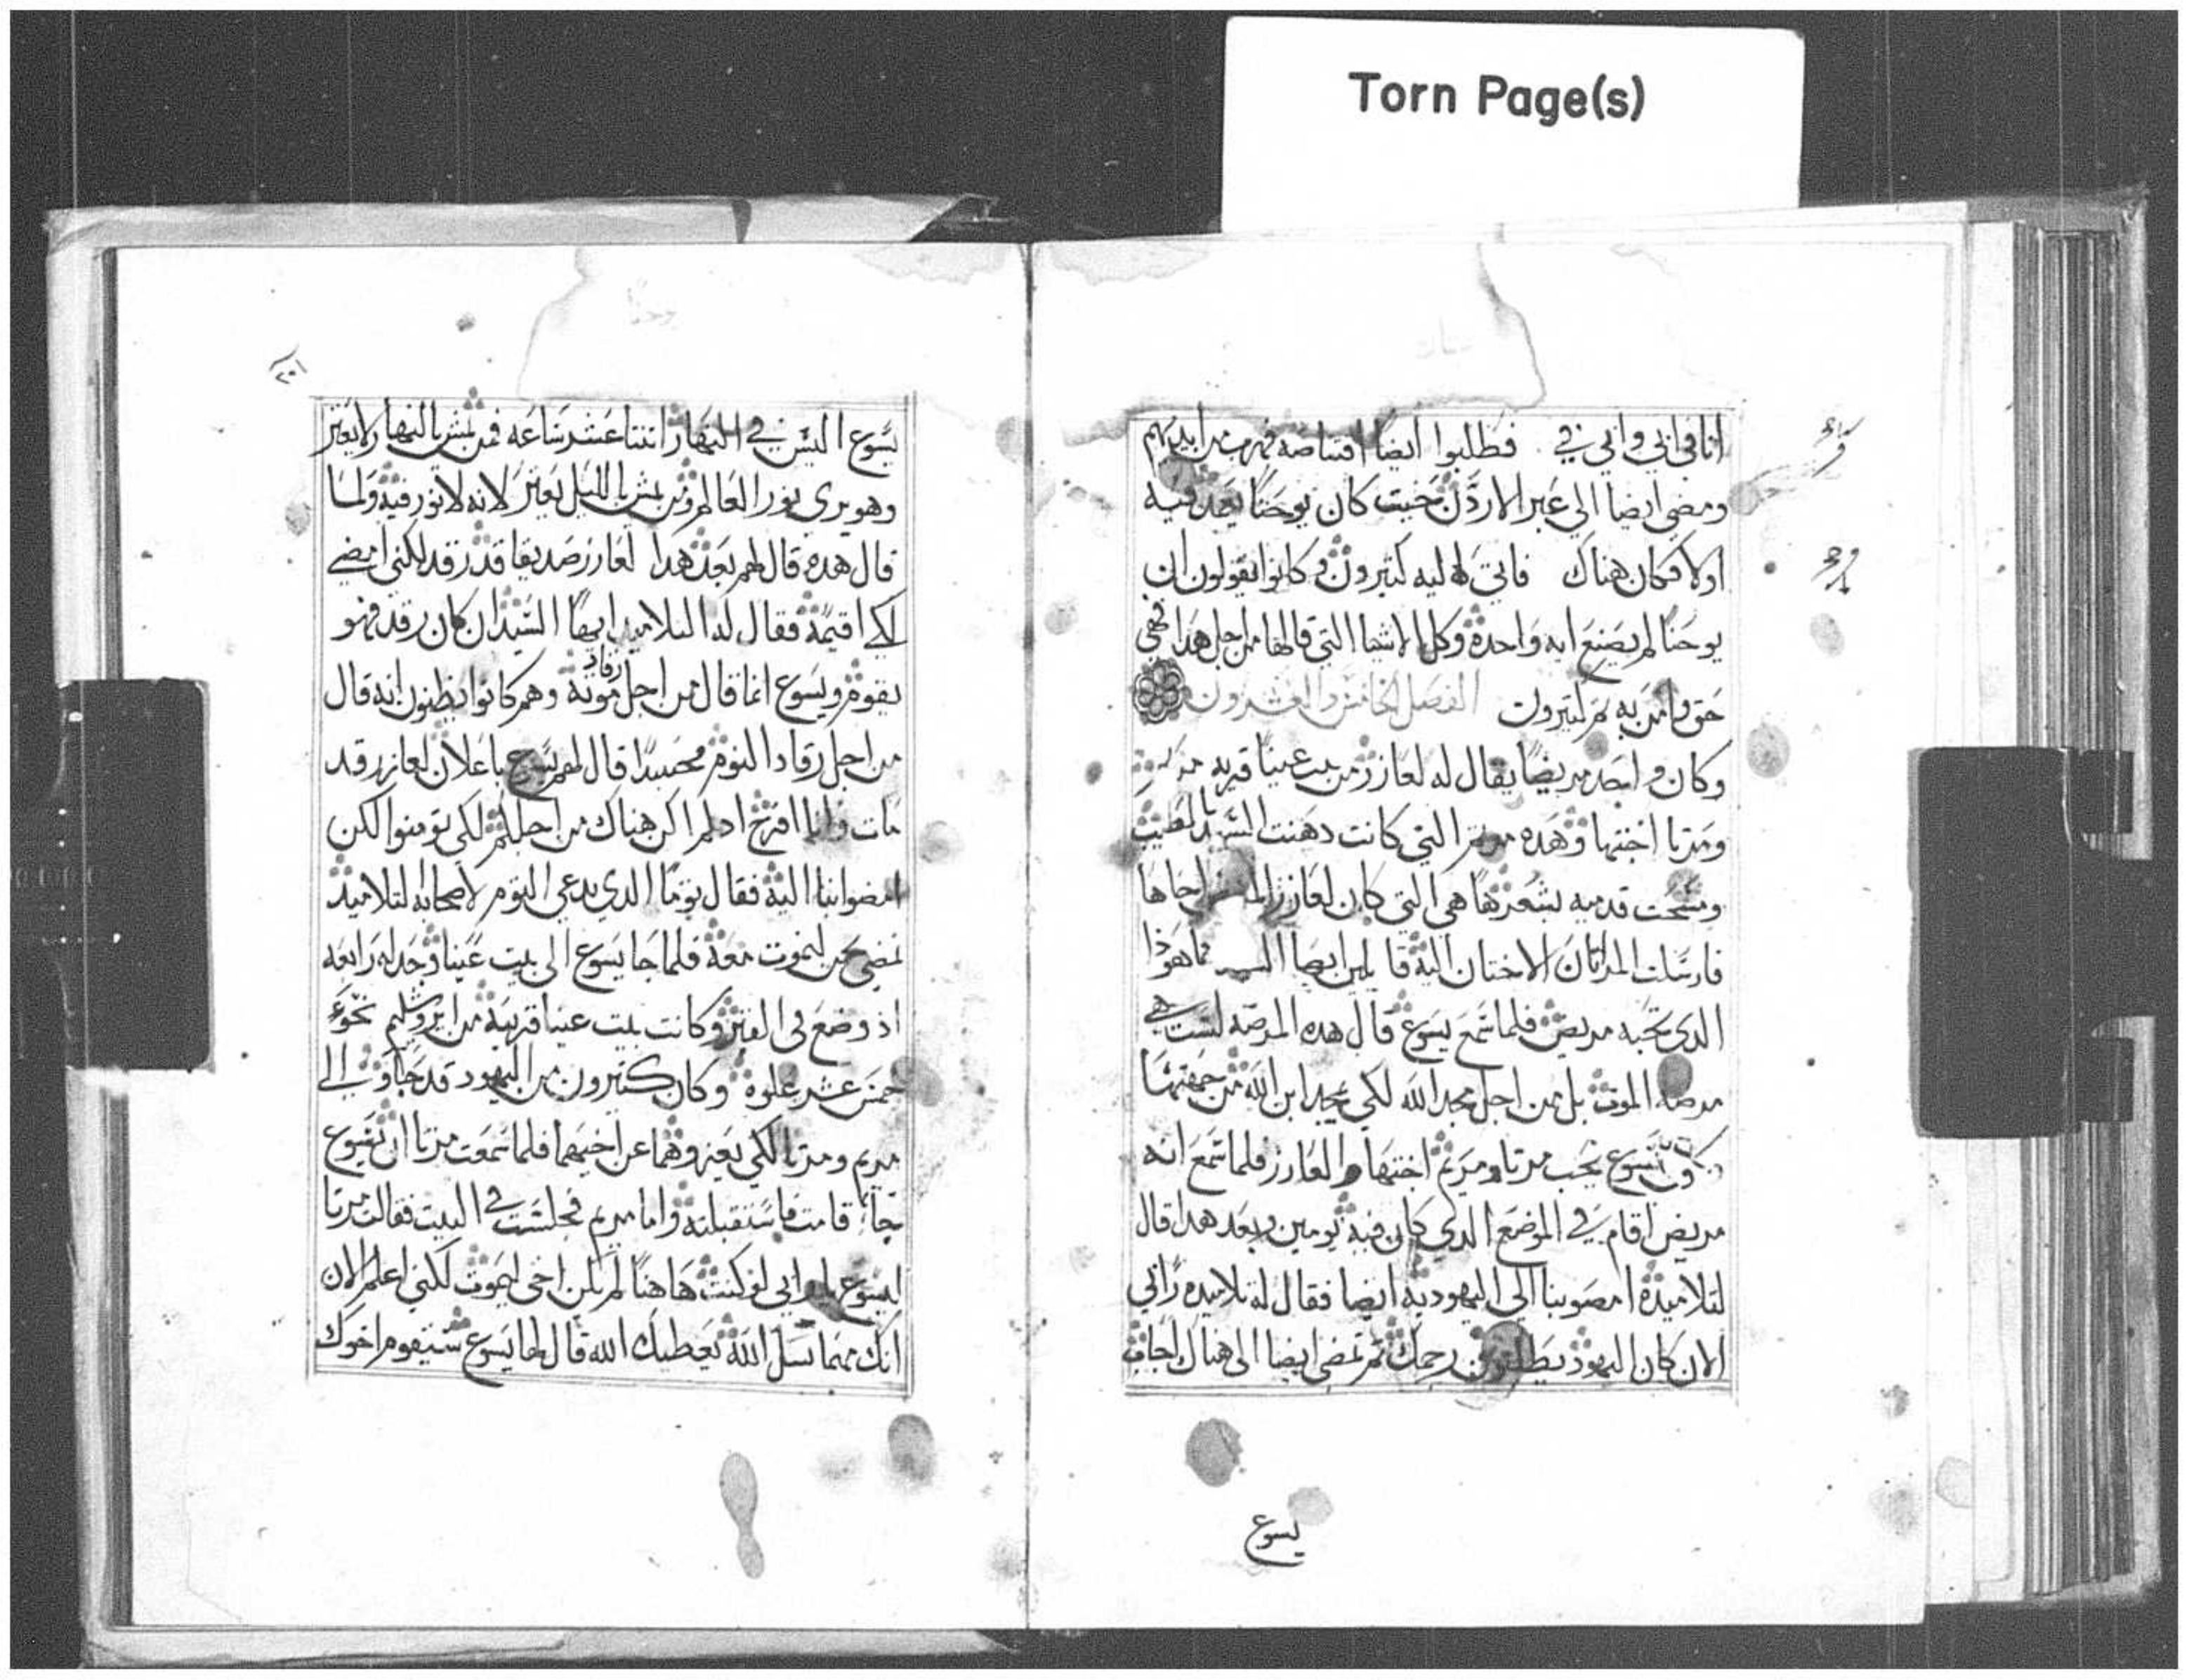 Torn Page(s)
انا في ابي وابي في فطلبوا ايضا اقتناصه فهرب من ايديهم
ومضى ايضا الى عبر الاردن حيت كان يوحنا يعمد فيه
اولا فكان هناك فاتى اليه كتيرون وكانوا يقولون ان
يوحنا لم يصنع ايه واحدة وكل الاشيا التي قالها من اجل هدا فهي
حق وامن به كتيرون الفصل الخامس والعشرون
وكان واحد مريضا يقال له لعازر من بيت عنيا قريه مريم
ومرتا اختها وهده مريم التي كانت دهنت السيد بالطيب
ومسحت قدميه بشعرها هي التي كان لعازر اخاها
فارسلت المراتان الاختان اليه قايلين ايها السيد هاهوذا
الدي تحبه مريض فلما سمع يسوع قال هده المرضه ليست هي
مرضه الموت بل من اجل مجد الله لكي يمجد ابن الله من جهتها
وكان يسوع يحب مرتا ومريم اختها والعازر فلما سمع انه
مريض اقام في الموضع الدي كان فيه يومين وبعد هدا قال
لتلاميده امضوا بنا الى اليهوديه ايضا فقال له تلاميده رابي
الان كان اليهود يطلبون رجمك ثم تمضي ايضا الى هناك اجاب
يسوع
يوحنا
يسوع اليس في النهار اتنتا عشر ساعه فمن يمش بالنهار لا يعتر
وهو يرى نور العالم ومن يمش بالليل يعتر لانه لا نور فيه ولما
قال هده قال لهم بعد هدا لعازر صديقنا قد رقد لكني امضي
لكي اقيمه فقال له التلاميد ايها السيد ان كان رقد فهو
يقوم ويسوع انما قال من اجل رقاد موته وهم كانوا يظنون انه قال
من اجل رقاد النوم حينيدا قال لهم يسوع باعلان لعازر قد
مات وانا افرح اد لم اكن هناك من اجلكم لكي تومنوا لكن
امضوا بنا اليه فقال توما الدي يدعى التوم لاصحابه التلاميد
نمضي نحن لنموت معه فلما جا يسوع الى بيت عنيا وجد له رابعه
اذ وضع في القبر وكانت بيت عنيا قريبه من ايروشليم نحو
خمس عشر غلوة وكان كتيرون من اليهود قد جاوا الى
مريم ومرتا لكي يعزوهما عن اخيهما فلما سمعت مرتا ان يسوع
جا قامت فاستقبلته واما مريم فجلست في البيت فقالت مرتا
ليسوع يا رابي لو كنت هاهنا لم يكن اخي ليموت لكني اعلم الان
انك مهما تسل الله يعطيك الله قال لها يسوع سيقوم اخوك